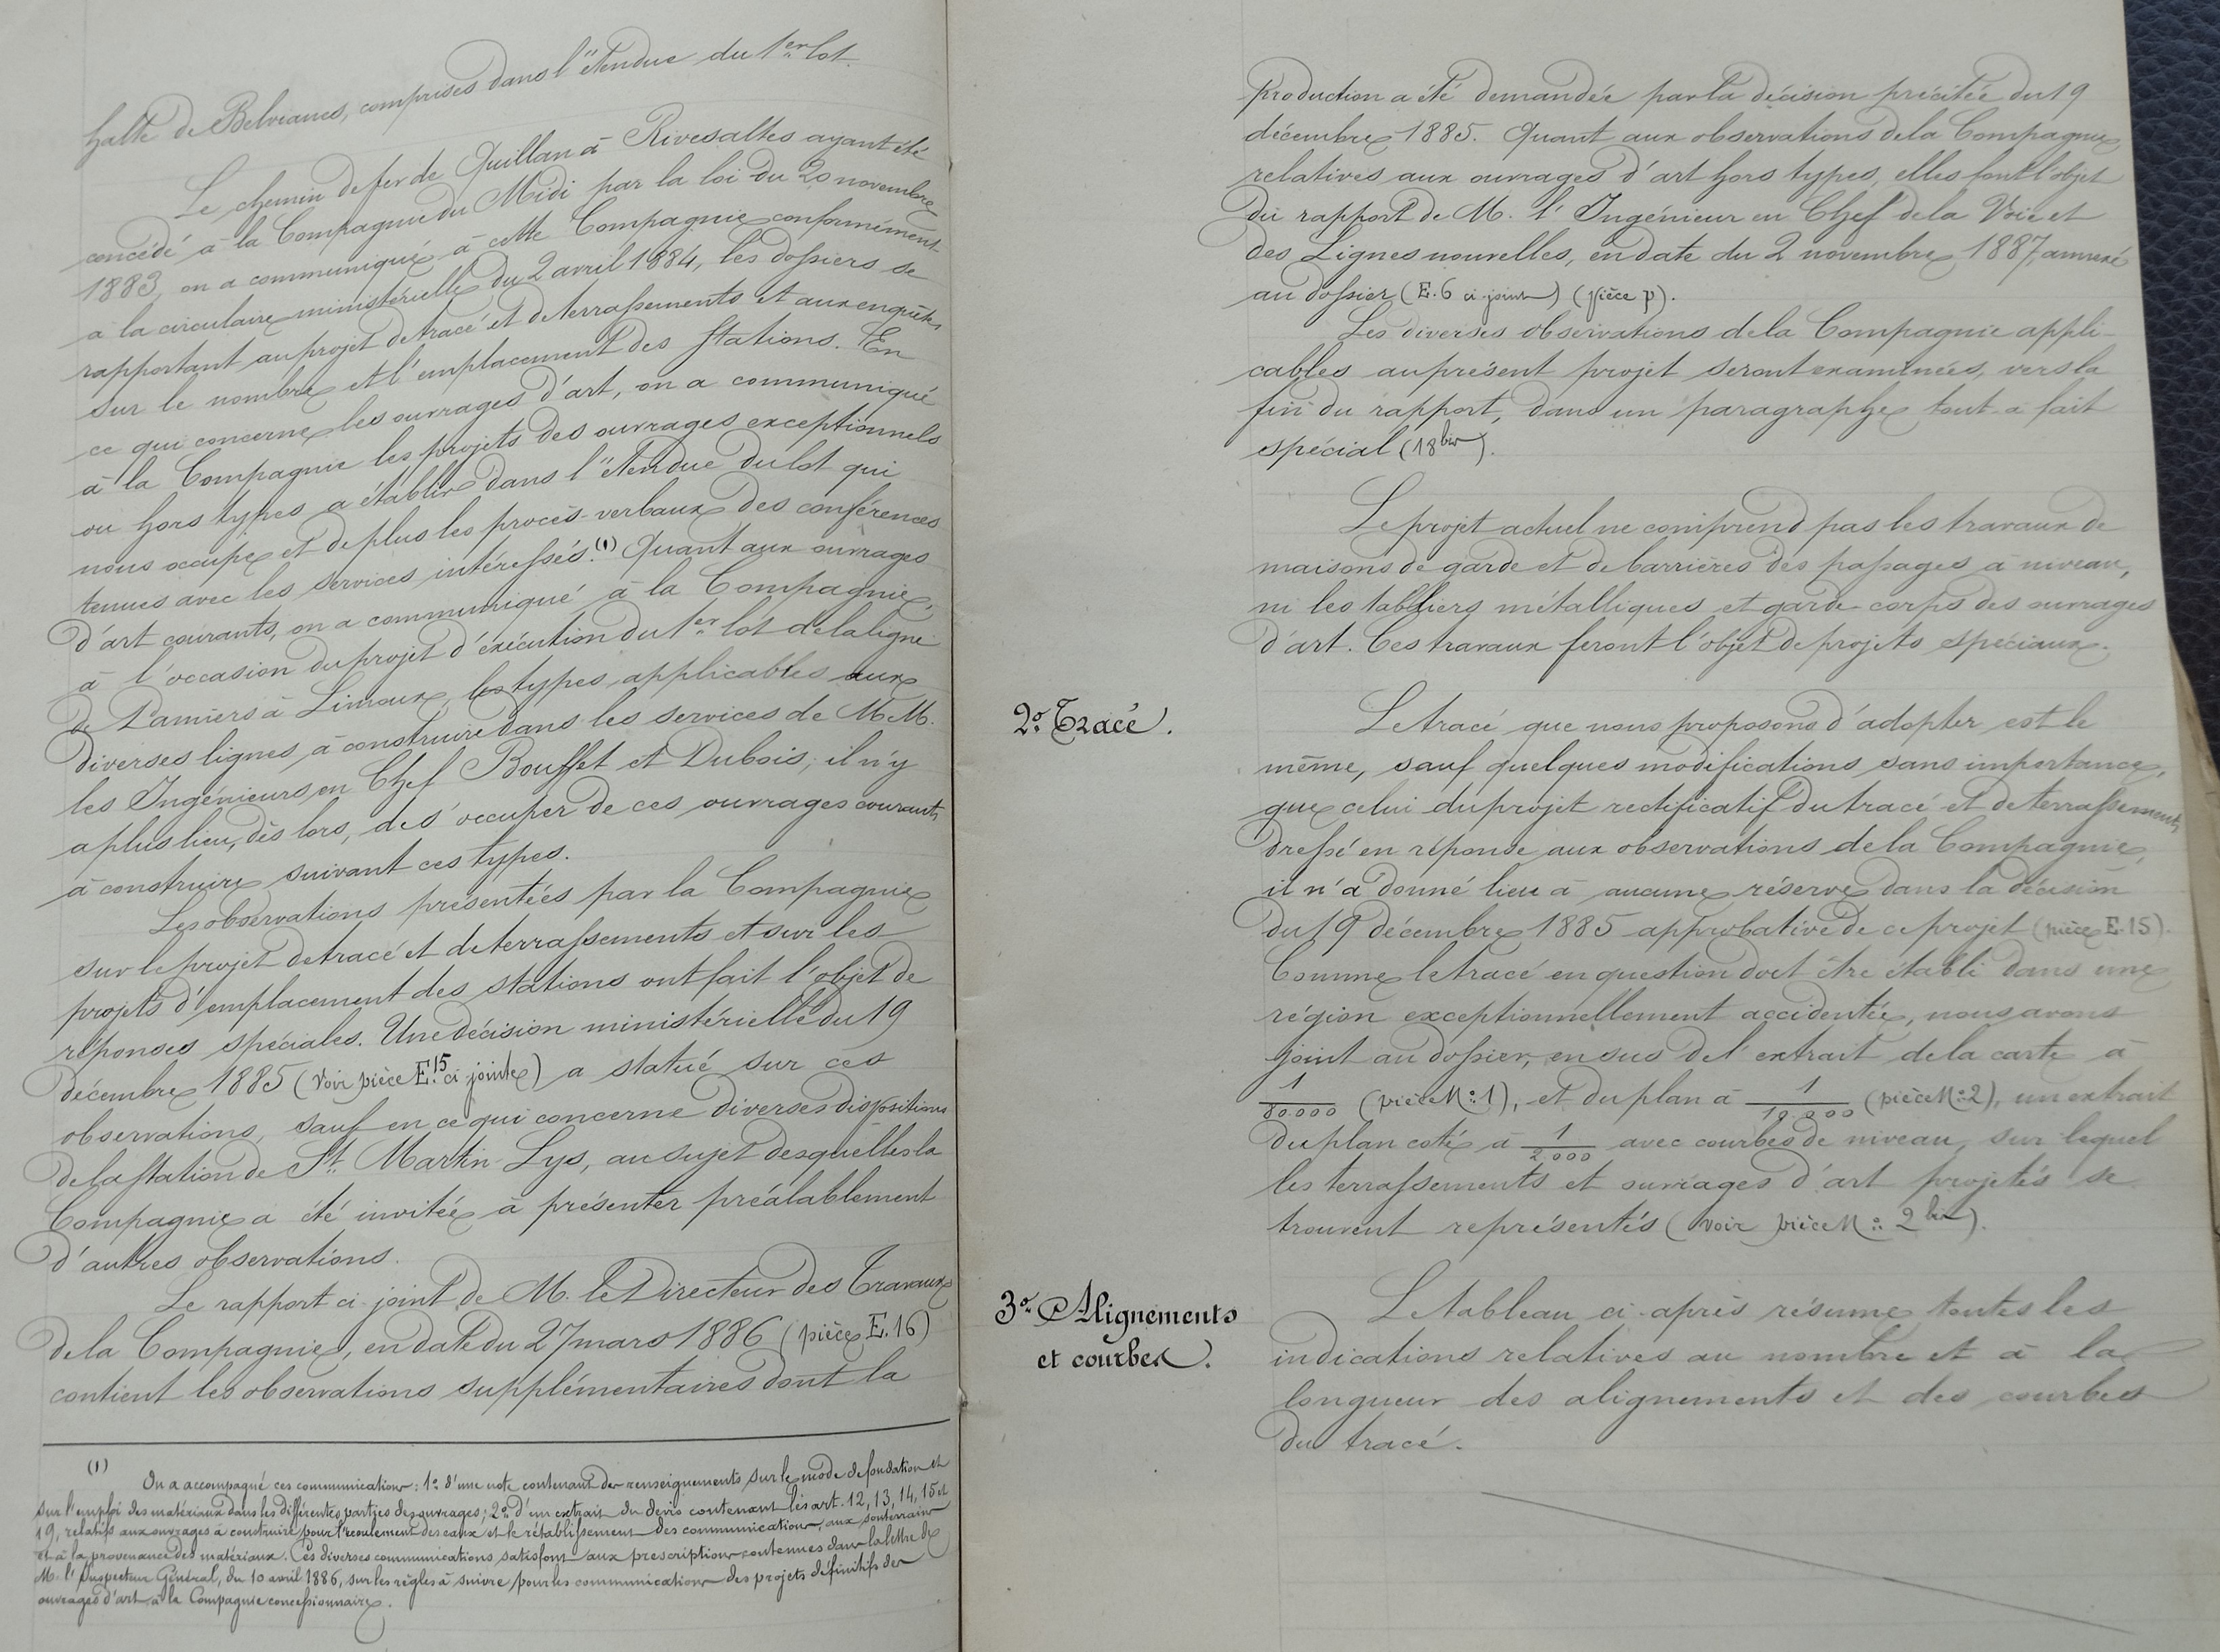 halte de Belvianes, comprises dans l'étendue du 1er lot.
Le chemin de fer de Quillan à Rivesaltes ayant été
concédé à la Compagnie du Midi par la loi du 20 novembre
1883, on a communiqué à cette Compagnie conformément
à la circulaire ministérielle du 2 avril 1884, les dossiers se
rapportant au projet de tracé et de terrassements et aux enquêtes
sur le nombre et l'emplacement des stations. En
ce qui concerne les ouvrages d'art, on a communiqué
à la Compagnie les projets des ouvrages exceptionnels
ou hors types à établir dans l'étendue du lot qui
nous occupe et de plus les procès-verbaux des conférences
tenues avec les services intéressés.(1) Quant aux ouvrages
d'art courants, on a communiqué à la Compagnie,
à l'occasion du projet d'exécution du 1er lot de la ligne
de Pamiers à Limoux, les types applicables aux
diverses lignes à construire dans les services de M.M.
les Ingénieurs en Chef Bouffet et Dubois; il n'y
a plus lieu, dès lors, de s'occuper de ces ouvrages courants
à construire suivant ces types.
Les observations présentées par la Compagnie
sur le projet de tracé et de terrassements et sur les
projets d'emplacement des stations ont fait l'objet de
réponses spéciales. Une décision ministérielle du 19
décembre 1885 (voir pièce E.15 ci-jointe) a statué sur ces
observations, sauf en ce qui concerne diverses dispositions
de la station de St. Martin-Lys, au sujet desquelles la
Compagnie a été invitée à présenter préalablement
d'autres observations.
Le rapport ci-joint de M. le Directeur des Travaux
de la Compagnie, en date du 27 mars 1886 (pièce E.16)
contient les observations supplémentaires dont la
(1) On a accompagné ces communications: 1° d'une note contenant des renseignements sur le mode de fondation et
sur l'emploi des matériaux dans les différentes parties des ouvrages; 2° d'un extrait du devis contenant les art. 12, 13, 14, 15 et
19, relatifs aux ouvrages à construire pour l'écoulement des eaux et le rétablissement des communications, aux souterrains
et à la provenance des matériaux. Ces diverses communications satisfont aux prescriptions contenues dans la lettre de
M. l'Inspecteur Général, du 10 avril 1886, sur les règles à suivre pour les communications des projets définitifs des
ouvrages d'art à la Compagnie concessionnaire.
production a été demandée par la décision précitée du 19
décembre 1885. Quant aux observations de la Compagnie
relatives aux ouvrages d'art hors types, elles font l'objet
du rapport de M. l'Ingénieur en Chef de la Voie et
des Lignes nouvelles, en date du 2 novembre 1887, annexé
au dossier (E.6 ci-joint) (pièce p).
Les diverses observations de la Compagnie appli-
cables au présent projet seront examinées, vers la
fin du rapport, dans un paragraphe tout à fait
spécial (18bis).
Le projet actuel ne comprend pas les travaux de
maisons de garde et de barrières des passages à niveau,
ni les tabliers métalliques et garde-corps des ouvrages
d'art. Ces travaux feront l'objet de projets spéciaux.
2° Tracé.
Le tracé que nous proposons d'adopter est le
même, sauf quelques modifications sans importance,
que celui du projet rectificatif du tracé et de terrassements
dressé en réponse aux observations de la Compagnie,
il n'a donné lieu à aucune réserve dans la décision
du 19 décembre 1885 approbative de ce projet (pièce E.15).
Comme le tracé en question doit être établi dans une
région exceptionnellement accidentée, nous avons
joint au dossier, en sus de l'extrait de la carte à
1/80.000 (pièce N° 1), et du plan à 1/10.000 (pièce N° 2), un extrait
du plan coté à 1/2.000 avec courbes de niveau, sur lequel
les terrassements et ouvrages d'art projetés se
trouvent représentés (voir pièce N° 2bis).
3° Alignements
et courbes.
Le tableau ci-après résume toutes les
indications relatives au nombre et à la
longueur des alignements et des courbes
du tracé.